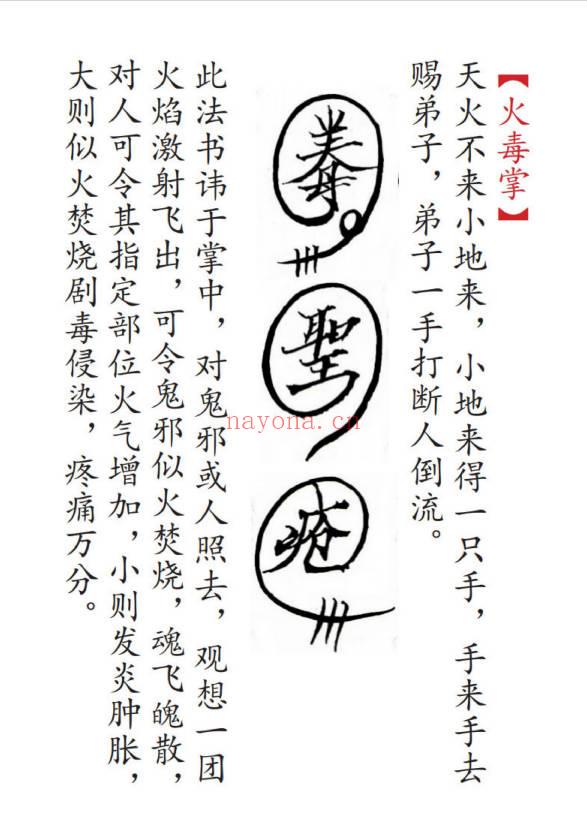 【火毒掌】
天火不来小地来，小地来得一只手，手来手去
赐弟子，弟子一手打断人倒流。
聖
此法书讳于掌中，对鬼邪或人照去，观想一团
火焰激射飞出，可令鬼邪似火焚烧，魂飞魄散，
对人可令其指定部位火气增加，小则发炎肿胀，
大则似火焚烧剧毒侵染，疼痛万分。
nayona.cn